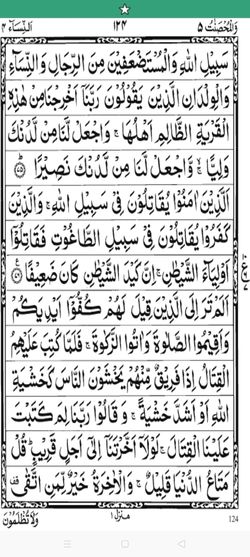 النسآء ٤ ١٢٤ والمحصنت ٥
سَبِيْلِ اللّٰهِ وَالْمُسْتَضْعَفِيْنَ مِنَ الرِّجَالِ وَالنِّسَآءِ
وَالْوِلْدَانِ الَّذِيْنَ يَقُوْلُوْنَ رَبَّنَاۤ اَخْرِجْنَا مِنْ هٰذِهِ
الْقَرْيَةِ الظَّالِمِ اَهْلُهَا ۚ وَاجْعَلْ لَّنَا مِنْ لَّدُنْكَ
وَلِيًّا ۙ وَّاجْعَلْ لَّنَا مِنْ لَّدُنْكَ نَصِيْرًا ﴿٧٥﴾
اَلَّذِيْنَ اٰمَنُوْا يُقَاتِلُوْنَ فِيْ سَبِيْلِ اللّٰهِ ۚ وَالَّذِيْنَ
كَفَرُوْا يُقَاتِلُوْنَ فِيْ سَبِيْلِ الطَّاغُوْتِ فَقَاتِلُوْۤا
اَوْلِيَآءَ الشَّيْطٰنِ ۚ اِنَّ كَيْدَ الشَّيْطٰنِ كَانَ ضَعِيْفًا ﴿٧٦﴾
اَلَمْ تَرَ اِلَى الَّذِيْنَ قِيْلَ لَهُمْ كُفُّوْۤا اَيْدِيَكُمْ
وَاَقِيْمُوا الصَّلٰوةَ وَاٰتُوا الزَّكٰوةَ ۚ فَلَمَّا كُتِبَ عَلَيْهِمُ
الْقِتَالُ اِذَا فَرِيْقٌ مِّنْهُمْ يَخْشَوْنَ النَّاسَ كَخَشْيَةِ
اللّٰهِ اَوْ اَشَدَّ خَشْيَةً ۚ وَقَالُوْا رَبَّنَا لِمَ كَتَبْتَ
عَلَيْنَا الْقِتَالَ ۚ لَوْلَاۤ اَخَّرْتَنَاۤ اِلٰۤى اَجَلٍ قَرِيْبٍ ؕ قُلْ
مَتَاعُ الدُّنْيَا قَلِيْلٌ ۚ وَالْاٰخِرَةُ خَيْرٌ لِّمَنِ اتَّقٰى
وَلَا تُظْلَمُوْنَ منزل ١ 124